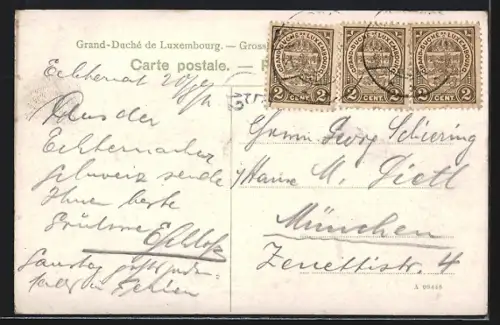 Grand-Duché de Luxembourg. — Gross
Carte postale. — P
GRAND-DUCHÉ DE LUXEMBOURG
2 CENT. 2
GRAND-DUCHÉ DE LUXEMBOURG
2 CENT. 2
GRAND-DUCHÉ DE LUXEMBOURG
2 CENT. 2
Echternach
Aus der
Echternacher
Schweiz sende
Ihnen beste
Grüsse
Samstag
in Ferien
Herrn Georg Schiering
M. Dietl
München
Zenettistr. 4